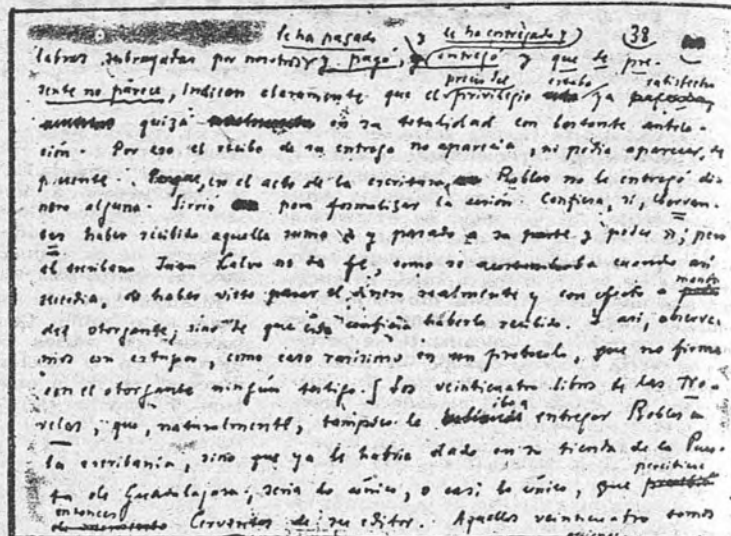 le ha pagado y le ha entregado y 38
labras subrayadas por nosotros y pagó, y entregó y que de pre-
precio del estaba satisfecho
sente no parece, indican claramente que el privilegio ya
quizá en su totalidad con bastante antela-
ción. Por eso el recibo de su entrega no aparecía, ni podía aparecer, de
presente. Porque, en el acto de la escritura, Robles no le entregó di-
nero alguno. Sirvió para formalizar la cesión. Confiesa, sí, Cervan-
tes haber recibido aquella suma y pasado a su parte y poder; pero
el escribano Juan Calvo no da fe, como se acostumbraba cuando así
mano
sucedía, de haber visto pasar el dinero realmente y con efecto a
del otorgante; sino de que éste confiesa haberlo recibido. Y así, observe-
mos con estupor, como caso rarísimo en un protocolo, que no firma
con el otorgante ningún testigo. Los veinticuatro libros de las No-
iba a
velas, que, naturalmente, tampoco le entregar Robles en
la escribanía, sino que ya le habría dado en su tienda de la Puer-
percibiese
ta de Guadalajara, sería lo único, o casi lo único, que
entonces
Cervantes de su editor. Aquellos veinticuatro tomos